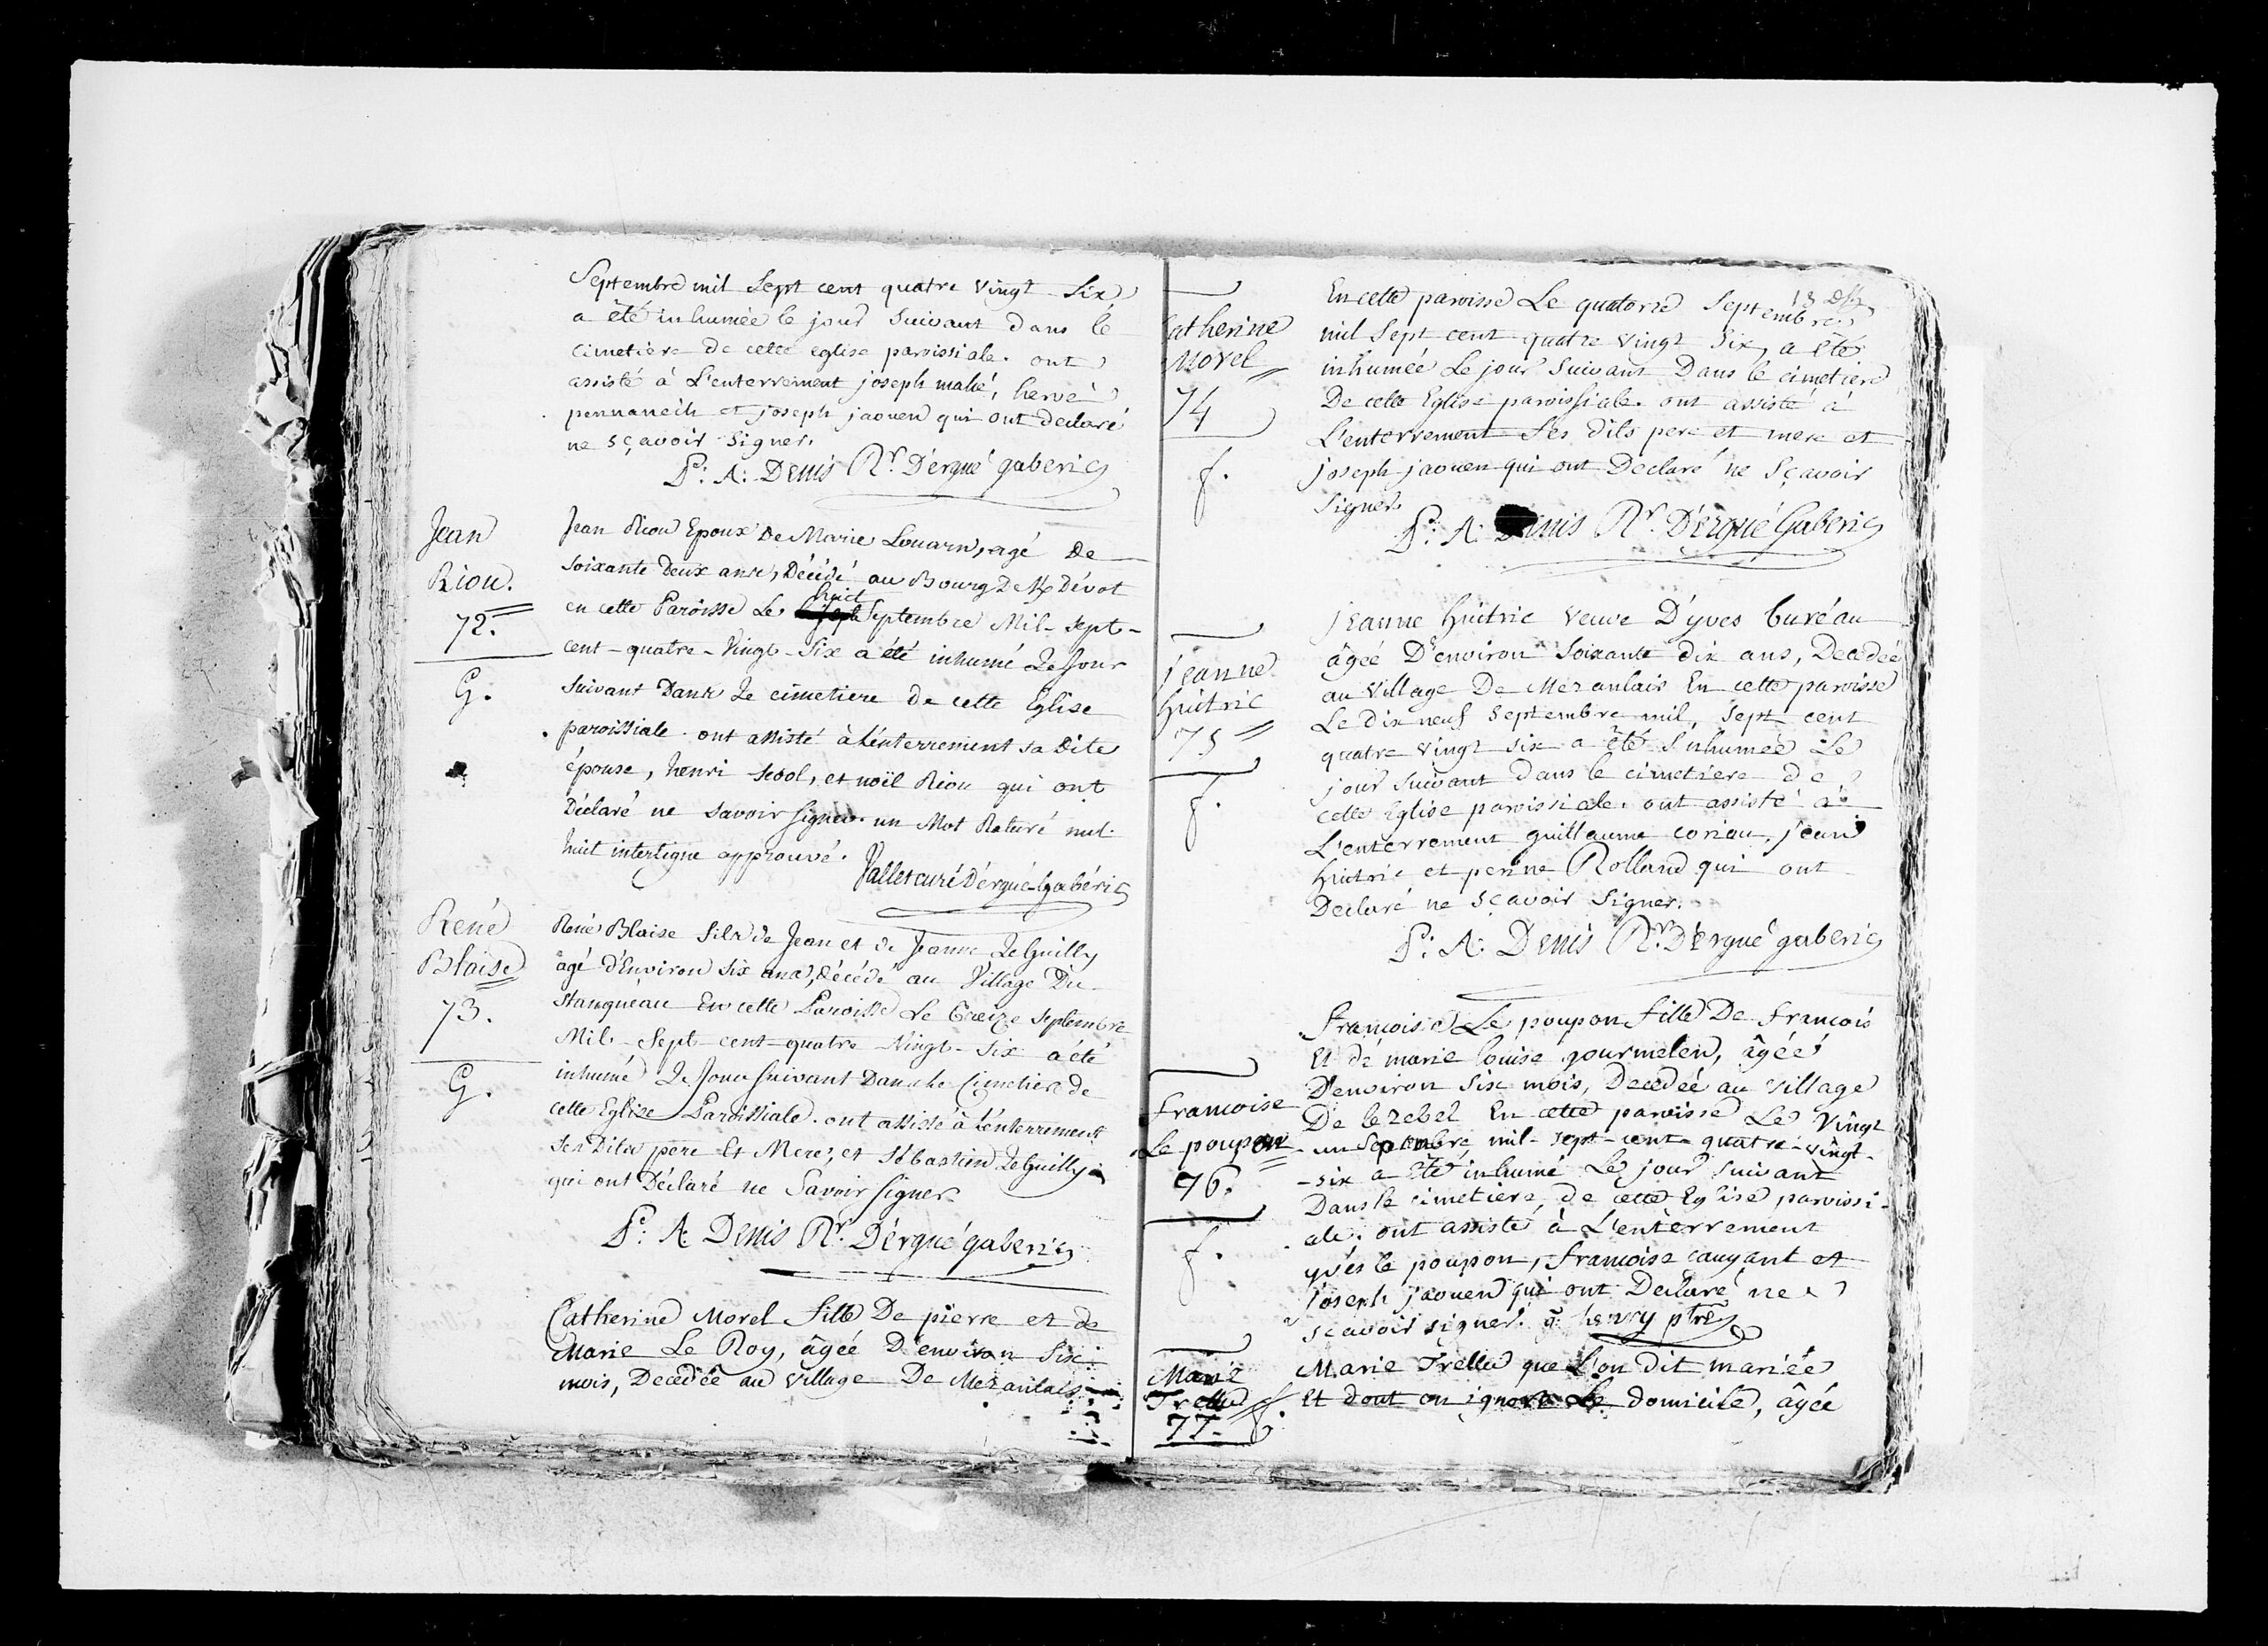 Septembre mil Sept cent quatre vingt Six
a été inhumée le jour Suivant dans le
cimetiere de cette eglise paroissiale. ont
assisté à L'enterrement joseph mahé, hervé
pennanech et joseph jaouen qui ont declaré
ne sçavoir signer.
P: A: Denis Rr. D'ergué gaberic
Jean
Riou.
72.
G.
Jean Riou Epoux De Marie Louarn, agé De
soixante Deux ans, Décédé au Bourg De Dévot
huict
en cette Paroisse Le Septembre Mil-Sept-
cent-quatre-Vingt-Six a été inhumé Le Jour
Suivant Dans Le cimetiere de cette Eglise
paroissiale. ont assisté à L'enterrement sa Dite
épouse, henri Leool, et noël Riou qui ont
Déclaré ne savoir signer. un Mot Raturé nul.
huit interligne approuvé.
Vallet curé D'ergué-Gabéric
René
Blaise
73.
G.
René Blaise fils de Jean et de Jeanne Le Guilly
agé d'Environ Six ans, Décédé au Village Du
Stanquéau En cette Paroisse Le Treize Septembre
Mil-Sept-cent-quatre-Vingt-Six a été
inhumé Le Jour Suivant Dans Le Cimetiere de
cette Eglise Paroissiale. ont assisté à L'enterrement
ses Dits pere Et Mere, et Sébastien Le Guilly
qui ont Déclaré ne Savoir Signer.
P: A: Denis Rr. D'ergué gaberic
Catherine Morel fille De pierre et de
Marie Le Roy, âgée D'environ Six
mois, Decedée au village De Mezanlais
13
Catherine
Morel
74
f.
En cette paroisse Le quatorze Septembre
mil Sept cent quatre vingt Six, a été
inhumée Le jour Suivant Dans le cimetiere
De cette Eglise paroissiale. ont assisté à
L'enterrement Ses dits pere et mere et
joseph jaouen qui ont Declaré ne Sçavoir
Signer.
P: A: Denis Rr. D'ergué Gaberic
jeanne
huitric
75
f.
jeanne huitric veuve D'yves buréau
âgée D'environ Soixante dix ans, Decedée
au village De Mezanlais En cette paroisse
Le dix neuf Septembre mil, Sept cent
quatre vingt six a été Inhumée Le
jour Suivant dans le cimetiere de
cette Eglise paroissiale. ont assisté à
L'enterrement guillaume coriou, jean
huitric et perine Rolland qui ont
Declaré ne sçavoir signer.
P: A: Denis Rr. D'ergué gaberic
francoise
Le poupon
76.
f.
francoise Le poupon fille De francois
Et de marie louise gourmelen, âgée
D'environ Six mois, Decedée au village
De lezebel En cette paroisse Le Vingt
-un Septembre, mil-sept-cent-quatre-vingt-
-six a été inhumé Le jour suivant
Dans le cimetiere, de cette Eglise paroissi-
ale. ont assisté à L'enterrement
yves le poupon, francoise caugant et
joseph jaouen qui ont Declaré ne
sçavoir signer. g. henry ptre
Marie
Trellu
77. f.
Marie Trellu que L'on dit mariée
Et dont on ignore Le domicile, âgée